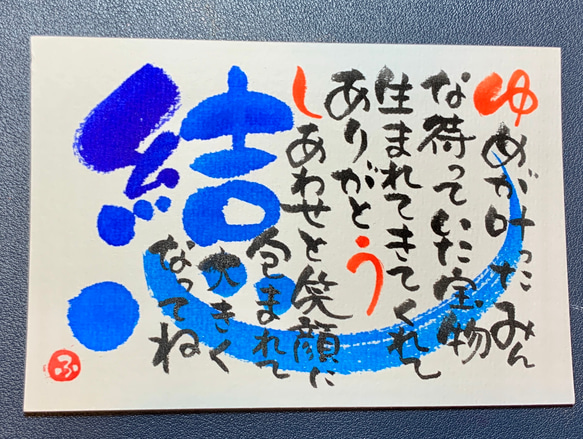 ゆめが叶ったみん
な待っていた宝物
生まれてきてくれて
ありがとう
しあわせと笑顔に
包まれて
大きく
なってね
結
ふ